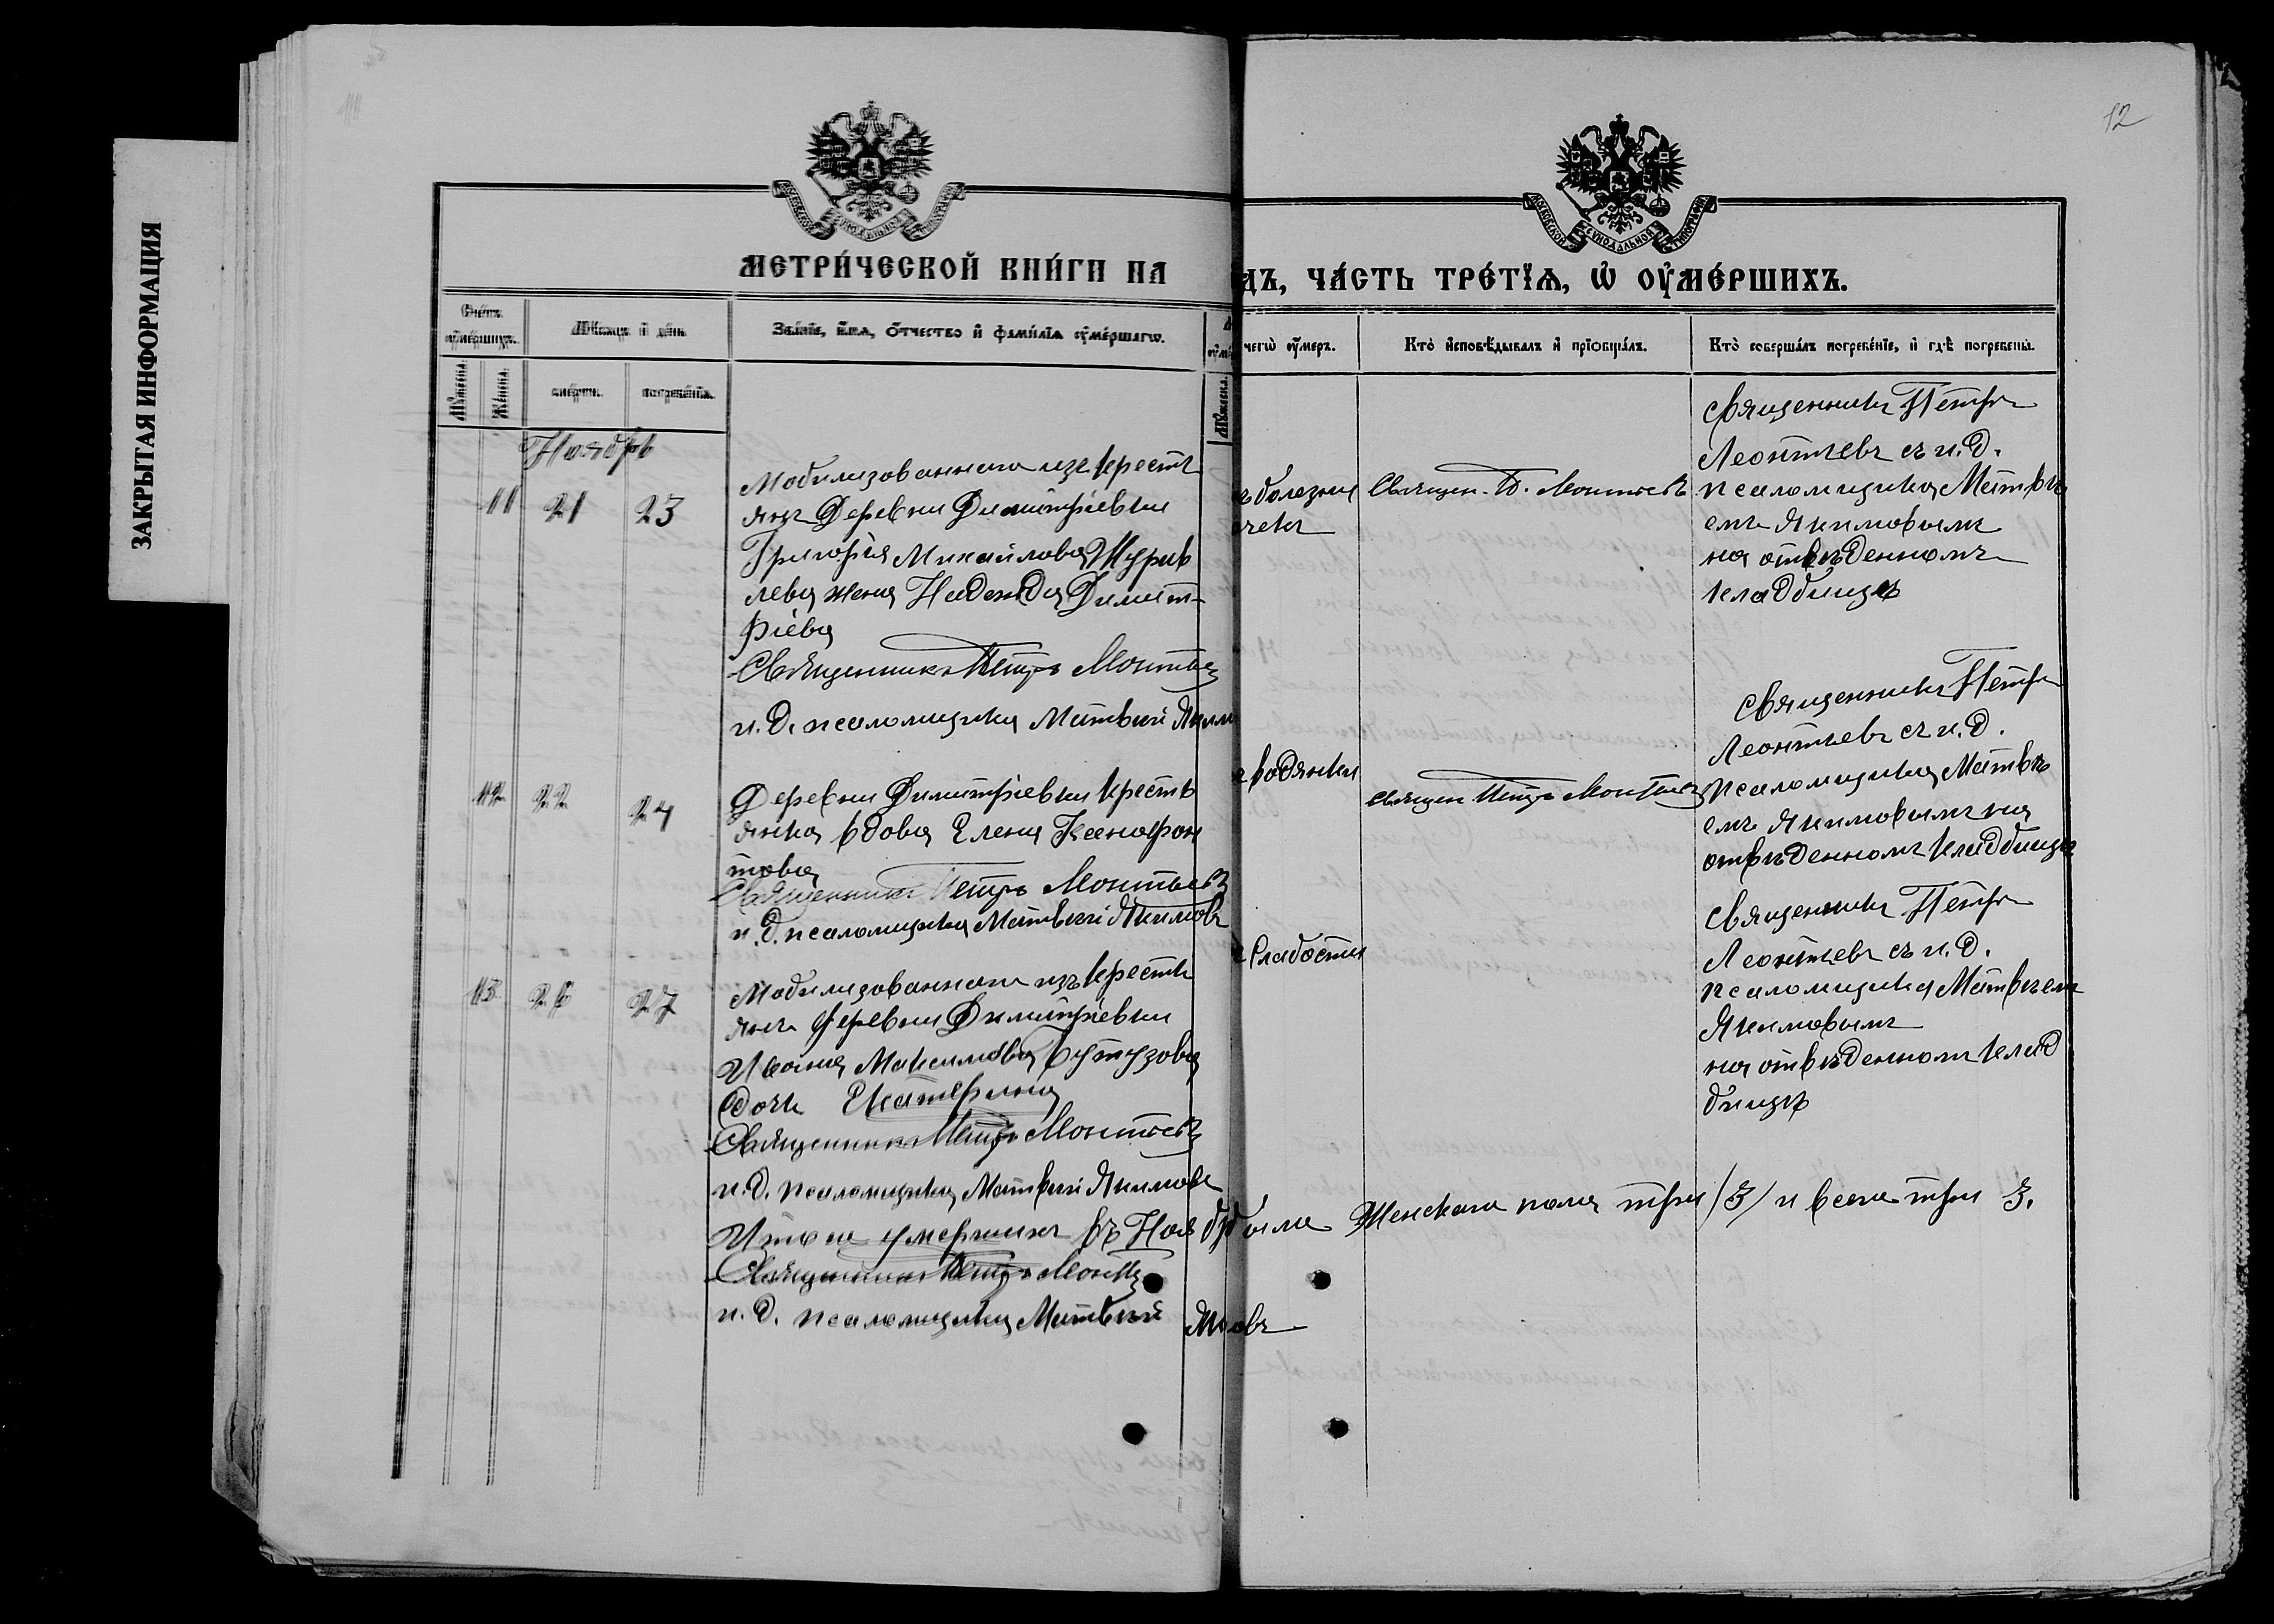 ЗАКРЫТАЯ ИНФОРМАЦИЯ
12
МОСКОВСКОЙ СѴНОДАЛЬНОЙ ТИПОГРАФІИ
МЕТРИ́ЧЕСКОЙ КНИ́ГИ НА
дъ, ча́сть тре́тїѧ, ѡ҆ оу҆ме́ршихъ.
Сче́тъ оу҆ме́ршихъ.
Мѣ́сѧцъ и҆ де́нь.
Зва́нїе, и҆́мѧ, ѻ҆́тчество и҆ фами́лїѧ оу҆ме́ршагѡ.
чегѡ̀ оу҆́меръ.
Кто̀ и҆сповѣ́дывалъ и҆ прїѡбща́лъ.
Кто̀ соверша́лъ погребе́нїе, и҆ гдѣ̀ погребены̀.
Мꙋ́жеска.
Же́нска.
сме́рти.
погребе́нїѧ.
Мꙋ́жеска.
Ноябрь
11 21 23
Мобилизованнаго изъ кресть
янъ Деревни Димитріевки
Григорія Михайлова Журав
лева жена Надежда Димит-
ріева
Священникъ Петръ Леонтьевъ
и. д. псаломщика Матвѣй Яким
болезни
Священ. П. Леонтьевъ
священникъ Петръ
Леонтьевъ съ и. д.
псаломщика Матвѣ
емъ Якимовымъ
на отведенномъ
кладбищѣ
12 22 24
Деревни Димитріевки кресть
янка вдова Елена Ксенофон
това
Священникъ Петръ Леонтьевъ
и. д. псаломщика Матвѣй Якимовъ
водянки
Священ Петръ Леонтьевъ
священникъ Петръ
Леонтьевъ съ и. д.
псаломщика Матвѣ
емъ Якимовымъ на
отведенномъ кладбищѣ
13 26 27
Мобилизованнаго изъ кресть
янъ деревни Димитріевки
Ивана Максимова Бутузова
дочь Екатерина
Священникъ Петръ Леонтьевъ
и. д. псаломщика Матвѣй Якимовъ
слабости
священникъ Петръ
Леонтьевъ съ и. д.
псаломщика Матвѣемъ
Якимовымъ
на отведенномъ клад
бищѣ
Итого умершихъ въ Ноябр было Женскаго пола три /3/ и всего три 3.
Священникъ Петръ Леонт
и. д. псаломщика Матвѣй Яковъ